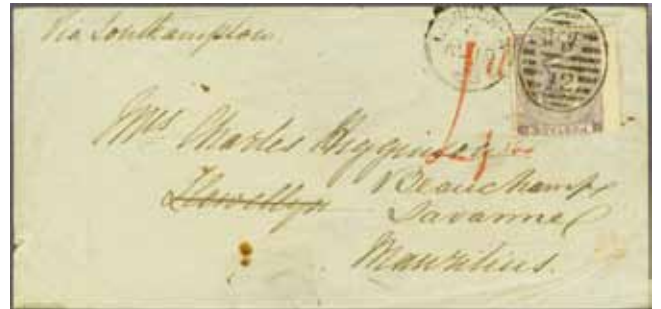 Via Southampton
Mrs Charles Higginson
Llewellyn Beauchamp
Savanne
Mauritius.
12
POSTAGE